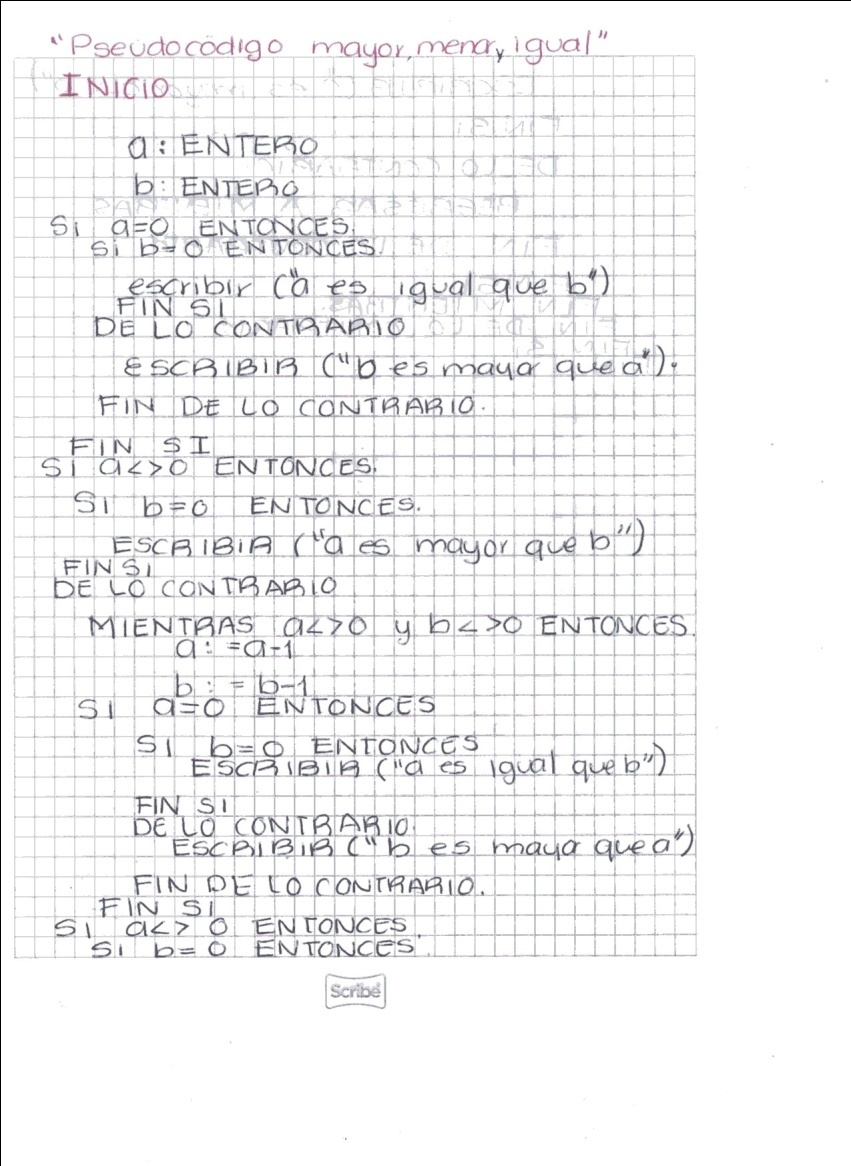 "Pseudocódigo mayor, menor, y igual"
INICIO
a: ENTERO
b: ENTERO
Si a=0 ENTONCES.
Si b=0 ENTONCES.
escribir ("a es igual que b")
FIN SI
DE LO CONTRARIO
ESCRIBIR ("b es mayor que a").
FIN DE LO CONTRARIO.
FIN SI
Si a<>0 ENTONCES.
SI b=0 ENTONCES.
ESCRIBIR ("a es mayor que b")
FIN SI
DE LO CONTRARIO
MIENTRAS a<>0 y b<>0 ENTONCES.
a: =a-1
b: = b-1
SI a=0 ENTONCES
SI b=0 ENTONCES
ESCRIBIR ("a es igual que b")
FIN SI
DE LO CONTRARIO.
ESCRIBIR ("b es mayor que a")
FIN DE LO CONTRARIO.
FIN SI
SI a<> 0 ENTONCES.
SI b= 0 ENTONCES.
Scribe